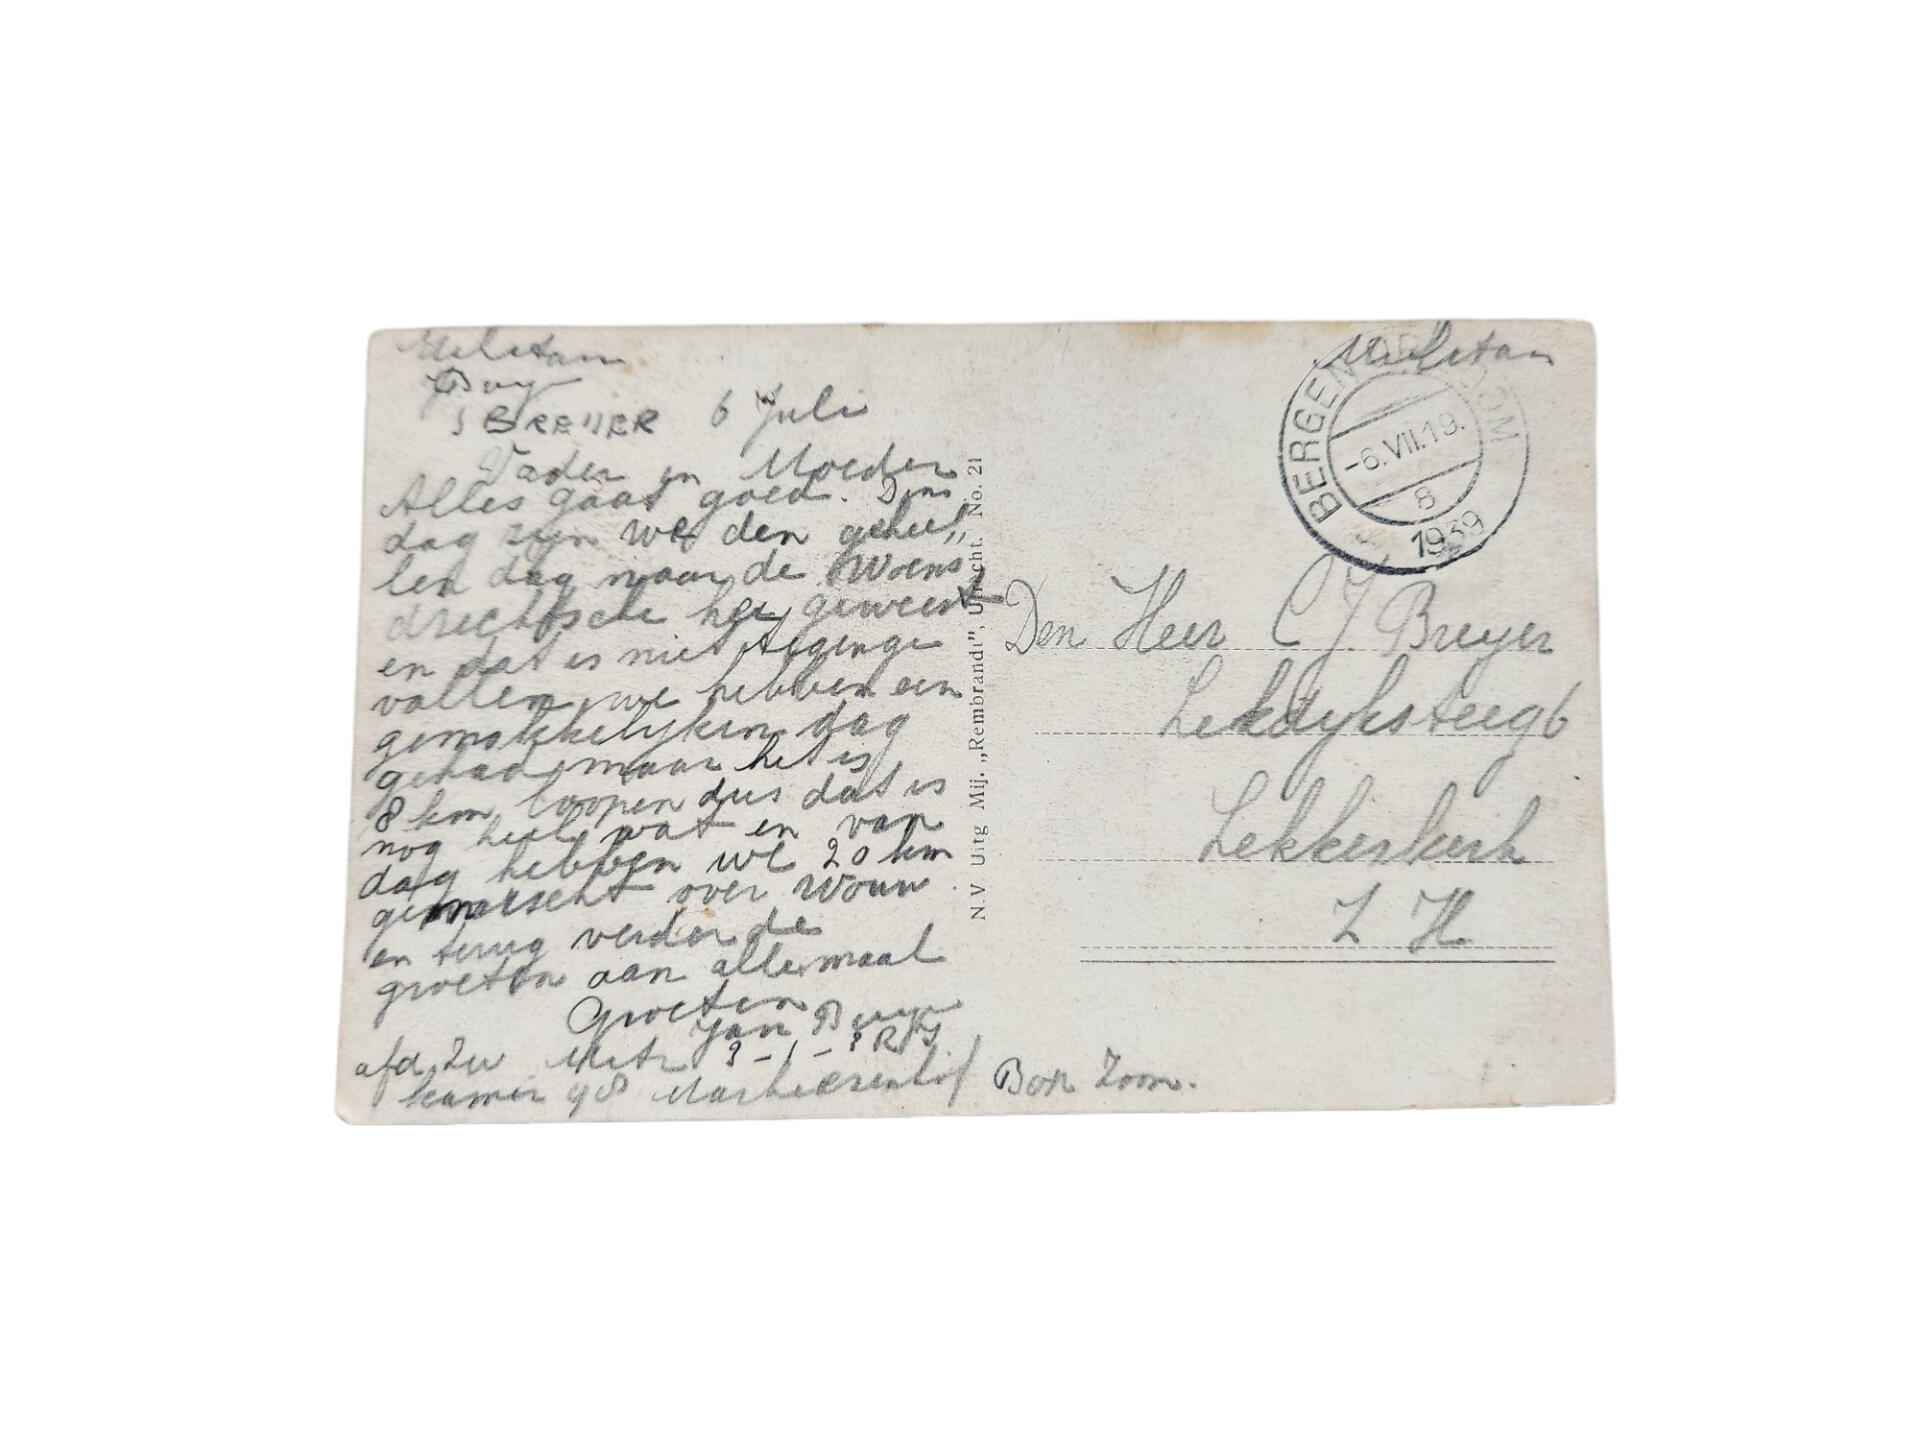 Militair
J BREIJER 6 Juli
Vader en Moeder
Alles gaat goed. Dins
dag zijn we den geheel„
len dag naar de Woens
drechtsche hei geweest
en dat is niet tegenge
vallen we hebben een
gemakkelijken dag
gehad maar het is
8 km loopen dus dat is
nog heel wat en van
dag hebben we 20 km
gemarscht over Wouw
en terug verder de
groeten aan allemaal
Groeten
Jan
afd Zw Mitr 3-1-3 RI
kamer 98 Markiezenhof Bon Zoom.
N.V Uitg Mij. „Rembrandt", Utrecht. No. 21
Militair
BERGEN OP ZOOM
-6.VII.19.
8
1939
Den Heer C J Breyer
Lekdijksteeg 6
Lekkerkerk
Z H